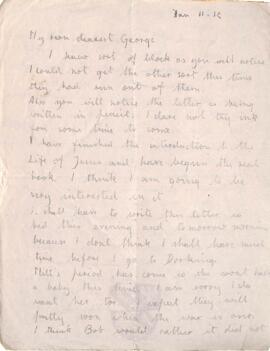 Jan 11-16
My own dearest George
I know sort of block as you will notice
I could not get the other sort this time
they had run out of them.
Also you will notice the letter is being
written in pencil. I dare not try ink
for some time to come.
I have finished the introduction to the
Life of Jesus and have begun the real
book. I think I am going to be
very interested in it
I shall have to write this letter in
bed this evening and tomorrow morning
because I dont think I shall have much
time before I go to Dorking.
Mill's period has come so she wont have
a baby this time. I am sorry I do
want her to. I expect they will
pretty soon when the war is over.
I think Bob would rather it did not